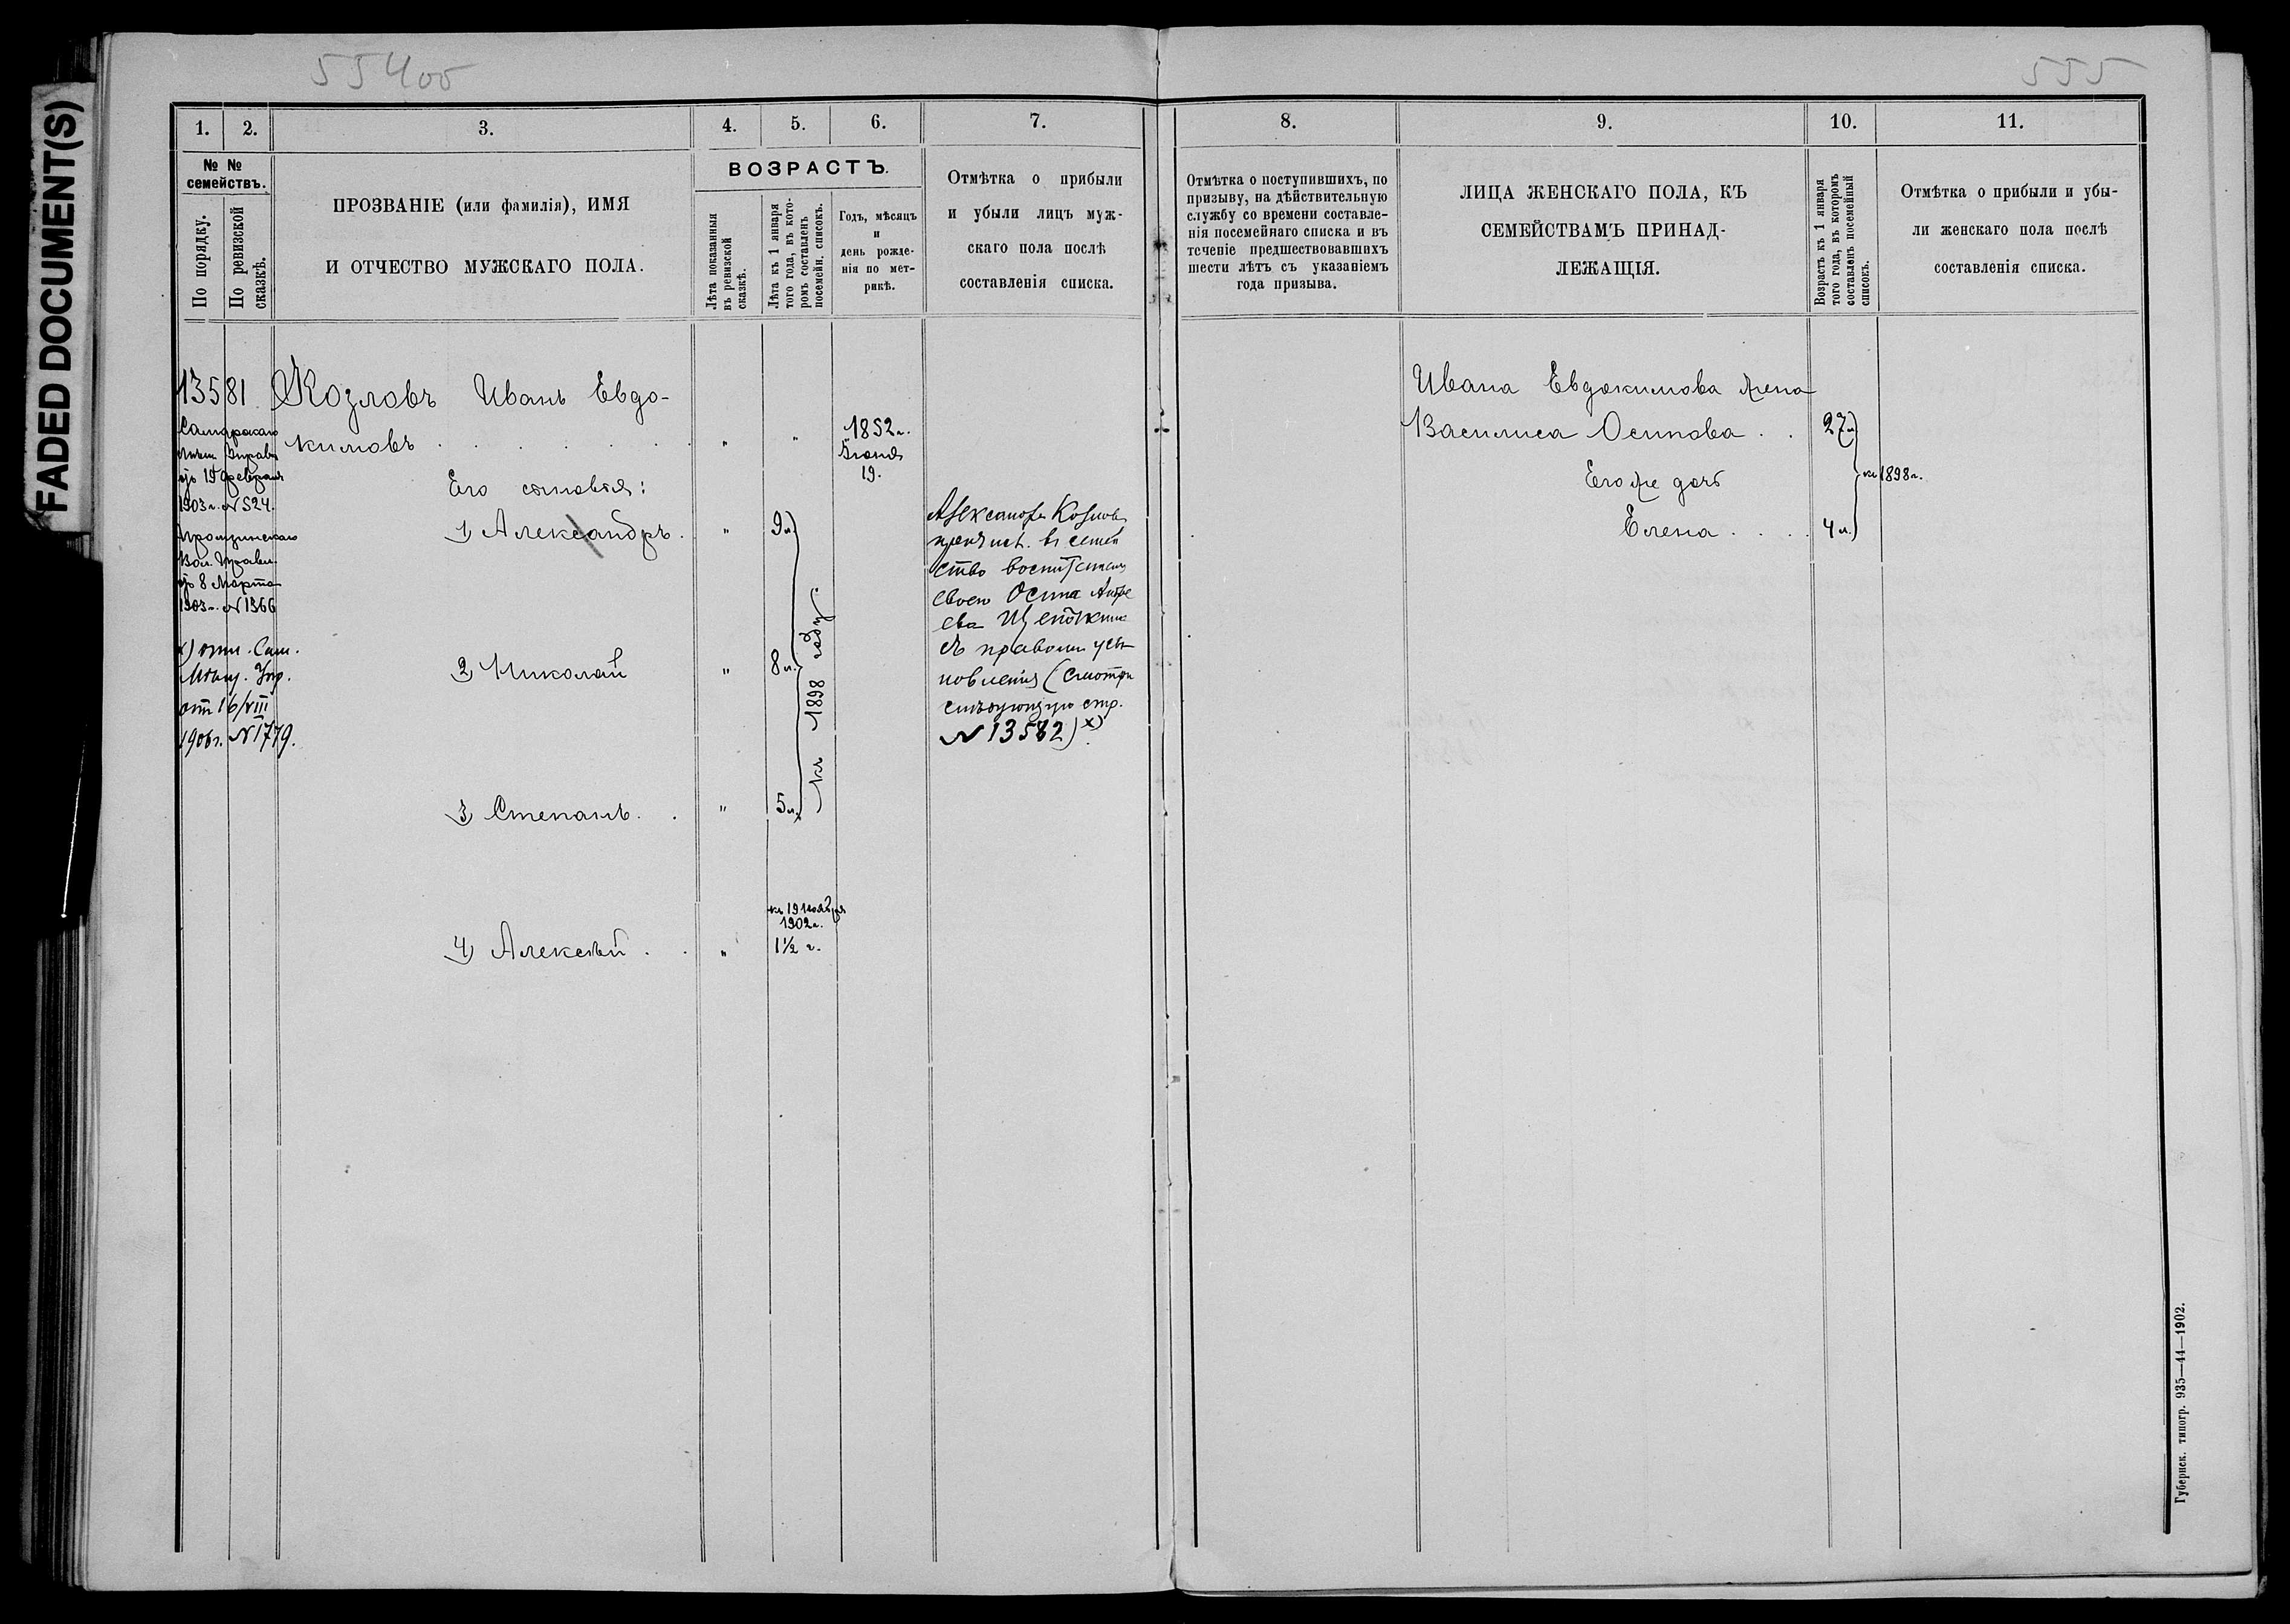 FADED DOCUMENT(S)
554об
555
1.
2.
3.
4.
5.
6.
7.
№ №
семействъ.
По порядку.
По ревизской
сказкѣ.
ПРОЗВАНІЕ (или фамилія), ИМЯ
И ОТЧЕСТВО МУЖСКАГО ПОЛА.
ВОЗРАСТЪ.
Лѣта показанныя
въ ревизской
сказкѣ.
Лѣта къ 1 января
того года, въ кото-
ромъ составленъ
посемейн. списокъ.
Годъ, мѣсяцъ
и
день рожде-
нія по мет-
рикѣ.
Отмѣтка о прибыли
и убыли лицъ муж-
скаго пола послѣ
составленія списка.
8.
9.
10.
11.
Отмѣтка о поступившихъ, по
призыву, на дѣйствительную
службу со времени составле-
нія посемейнаго списка и въ
теченіе предшествовавшихъ
шести лѣтъ съ указаніемъ
года призыва.
ЛИЦА ЖЕНСКАГО ПОЛА, КЪ
СЕМЕЙСТВАМЪ ПРИНАД-
ЛЕЖАЩІЯ.
Возрастъ къ 1 января
того года, въ которомъ
составленъ посемейный
списокъ.
Отмѣтка о прибыли и убы-
ли женскаго пола послѣ
составленія списка.
13581
Самарскаго
Мѣщ. Управ.
19 февраля
1903 г. № 524.
Вол. Правл.
8 Марта
1903 г. № 1366
х) отн. Сам.
Мѣщ. Упр.
отъ 16/VIII
1906 г. № 1779.
Козловъ Иванъ Евдо-
кимовъ . . . . . . " " 1852 г.
Іюня
19.
Его сыновья:
1) Александръ. " 9 л.
2) Николай " 8 л.
3) Степанъ. . " 5 л.
къ 1898 году.
къ 19 Ноября
1902 г.
4) Алексѣй . . " 1½ г.
Александръ Козловъ
перечисл. въ семей
ство воспитателя
своего Осипа Андре
ева
съ правомъ усы
новленія (смотри
слѣдующую стр.
№ 13582) х)
Ивана Евдокимова жена
Василиса Осипова . . 27 л.
Его же дочь
Елена . . . . 4 л.
къ 1898 г.
Губернск. типогр. 935—44—1902.